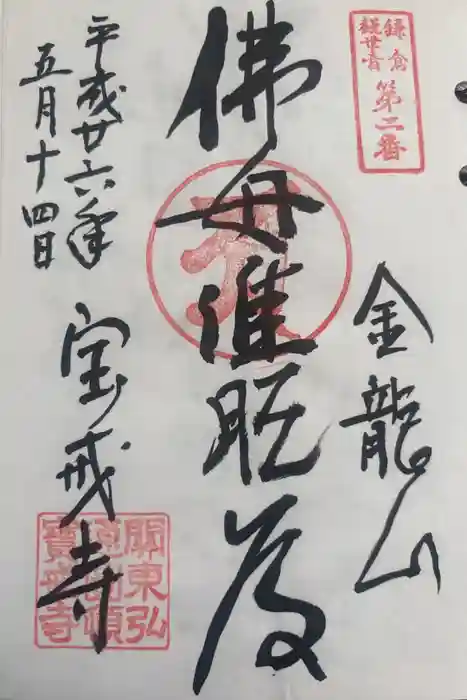 鎌倉
観世音
第二番
金龍山
佛母准胝尊
平成廿六年
五月十四日
宝戒寺
關東弘
寶戒寺